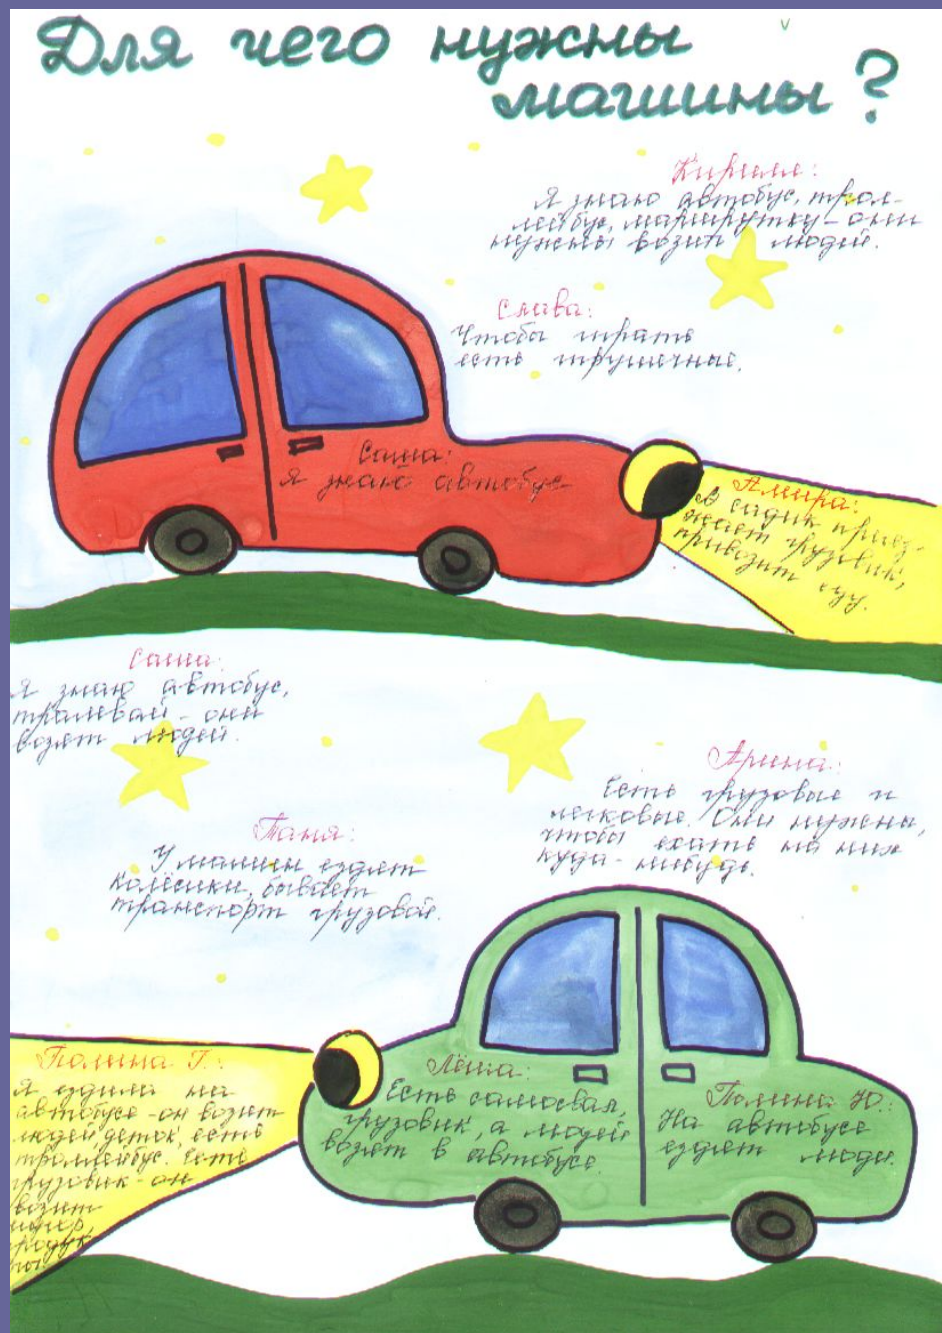 Для чего нужны
машины?
Кирилл:
Я знаю автобус, трол-
лейбус, маршрутку - они
нужны возить людей.
Слава:
Чтобы играть
есть игрушечные.
Саша:
Я знаю автобус
Амира:
В садик приез-
жает грузовик,
привозит еду.
Саша:
Я знаю автобус,
тралевай - они
возят людей.
Арина:
Есть грузовые и
легковые. Они нужны,
чтобы ехать на них
куда-нибудь.
Таня:
У машин ездят
колёсики, бывает
транспорт грузовой.
Полина Г.:
Я ездила на
автобусе - он возит
людей, деток, есть
троллейбус. Есть
грузовик - он
возит
продук
ты.
Лёша:
Есть самосвал,
грузовик, а людей
возят в автобусе.
Полина Ю.:
На автобусе
ездят люди.